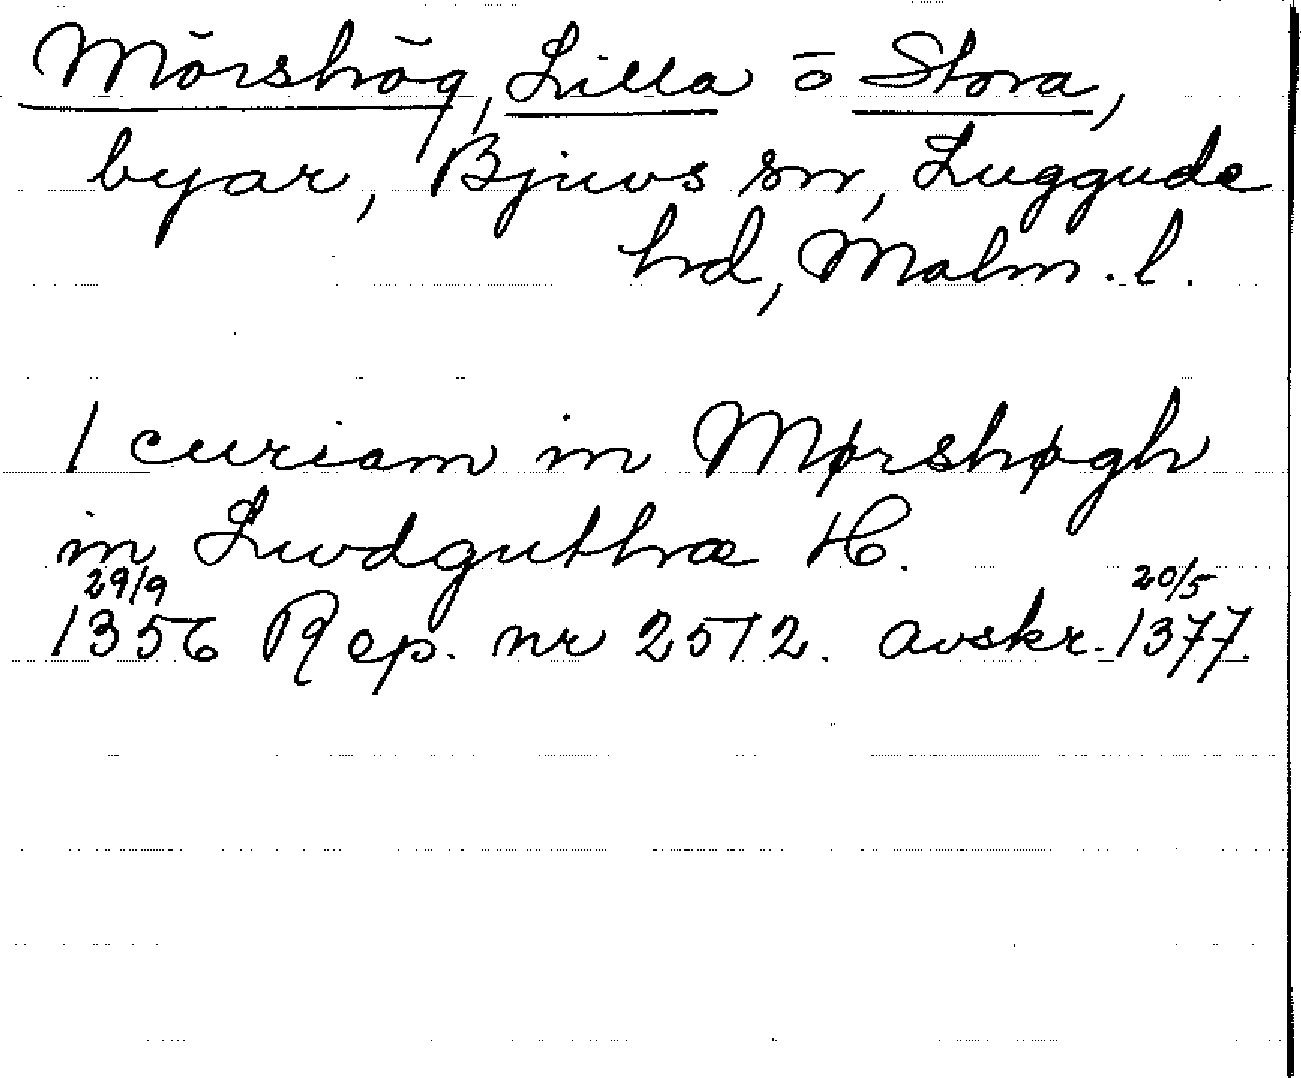 Mörshög, Lilla o Stora,
byar, Bjuvs sn, Luggude
hd, Malm. l.
1 curiam in Mørshøgh
in Luvdguthræ H.
29/9 20/5
1356 Rep. nr 2512. avskr. 1377.